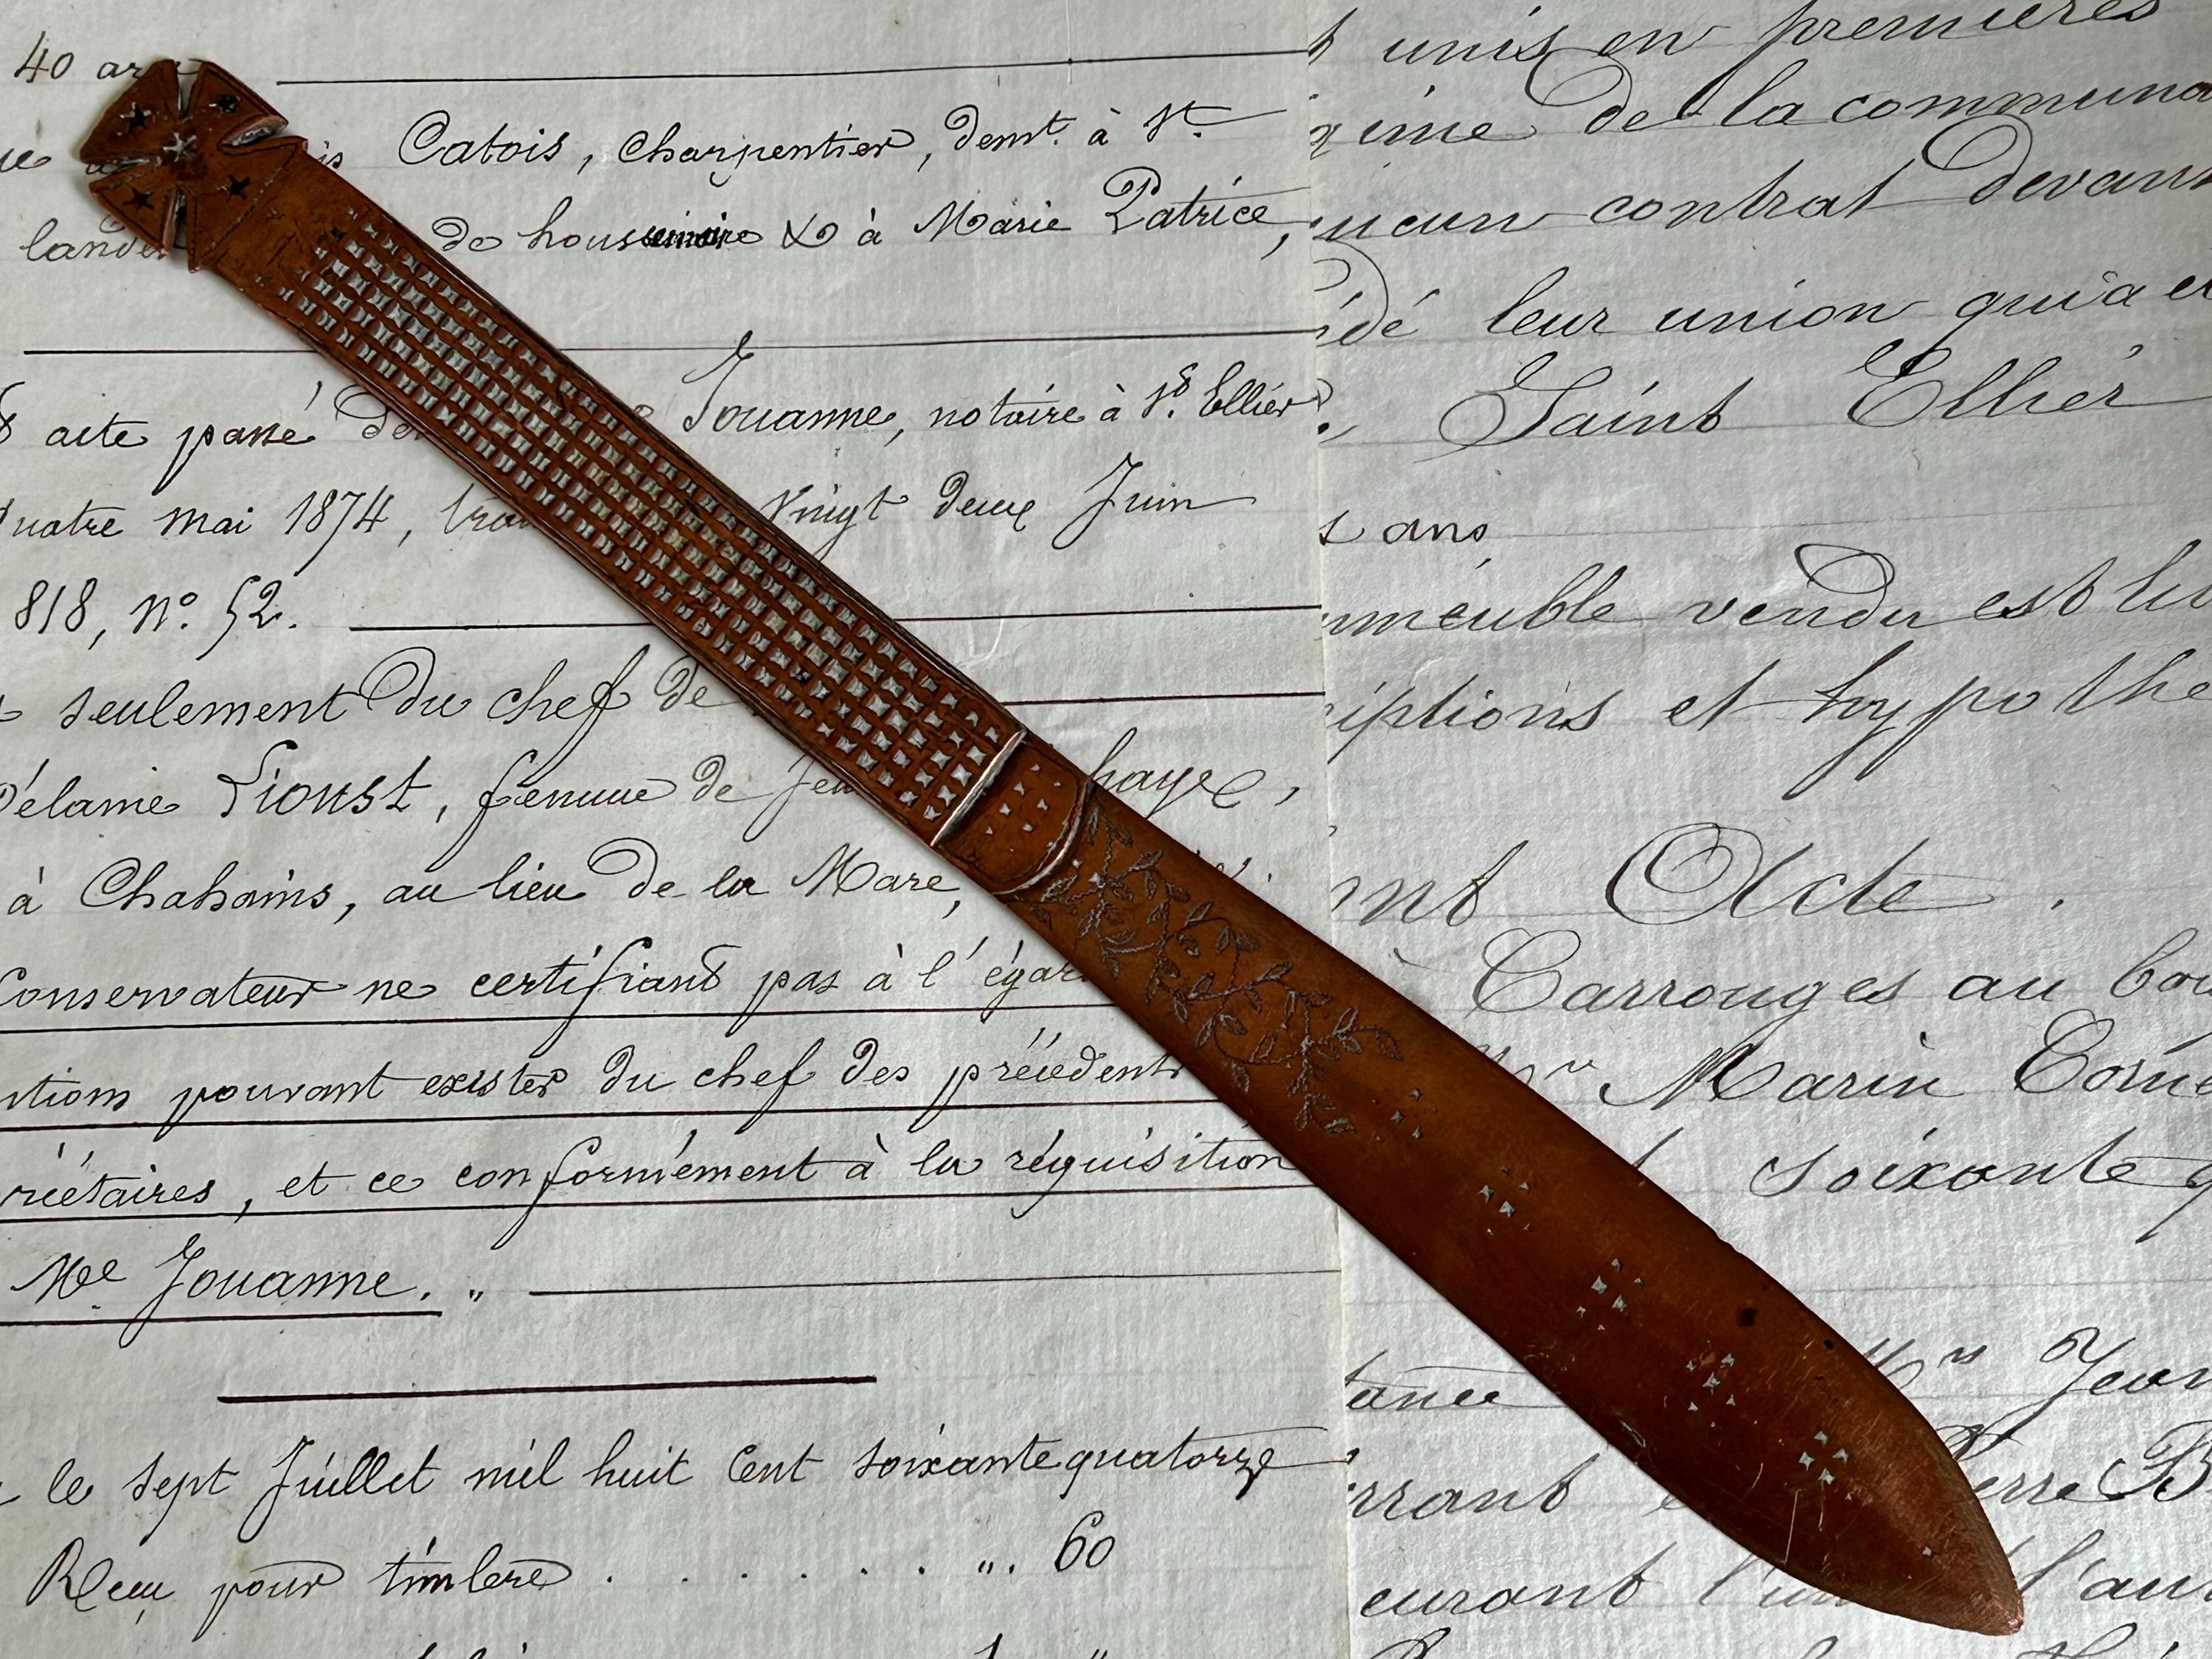 40
Catois, charpentier, demt. à St.
de housseminire & à Marie Patrice,
acte passé Jouanne, notaire à St. Ellier
quatre mai 1874, vingt deux Juin
818, n°. 52.
seulement du chef de
Mélanie Lioust, femme de haye,
à Chahains, au lieu de la Mare,
Conservateur ne certifiant pas à l'égard
pouvant exister du chef des précédents
riétaires, et ce conformément à la réquisition
Me Jouanne. "
le sept Juillet mil huit cent soixante quatorze
Reçu pour timbre . . . . . . ". 60
unis en premières
de la communa
ucun contrat devant
leur union qui a
Saint Ellier
ans
immeuble vendu est
iptions et hypothe
Acte.
à Carrouges au
Marin
soixante
Jean
l'au